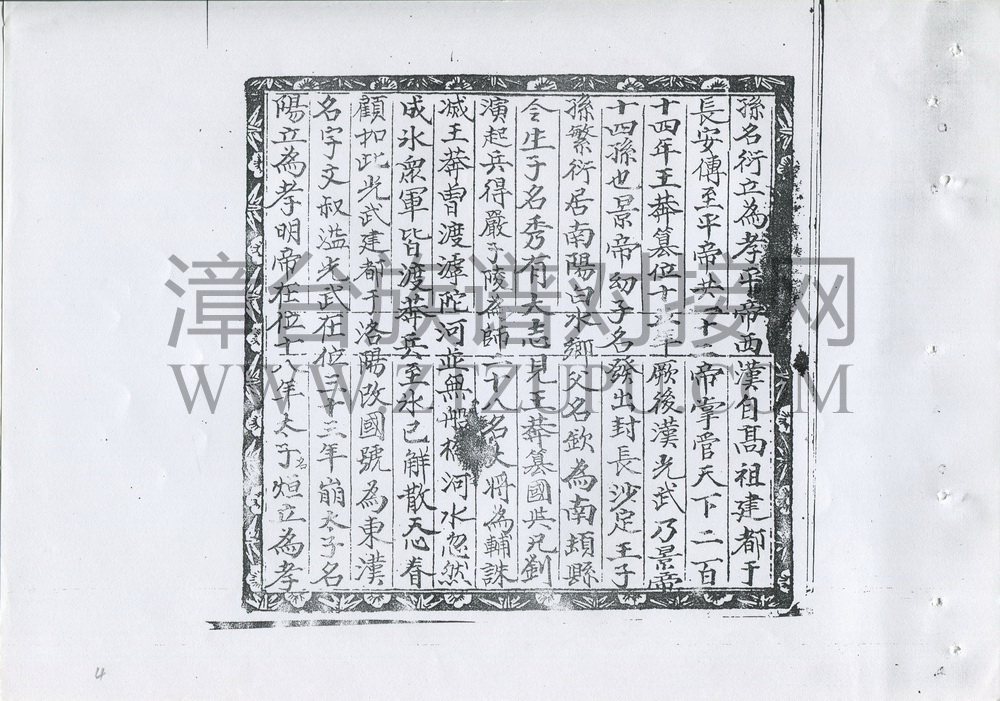 孫名衍立為孝平帝西漢自髙祖建都于
長安傳至平帝共十二帝掌管天下二百
十四年王莽篡位十年厥後漢光武乃景帝
十四孫也景帝幼子名發出封長沙定王子
孫繁衍居南陽白水鄉父名欽為南頓縣
令生子名秀有大志見王莽篡國與兄劉
演起兵得嚴子陵為師二十名大將為輔誅
滅王莽曾渡滹沱河並無船橋河水忽然
成氷衆軍皆渡莽兵至氷已解散天心眷
顧如此光武建都于洛陽改國號為東漢
名字文叔謚光武在位三十三年崩太子名
陽立為孝明帝在位十八年太子名烜立為孝
漳台族谱对接网
WWW.ZTZUPU.COM
4